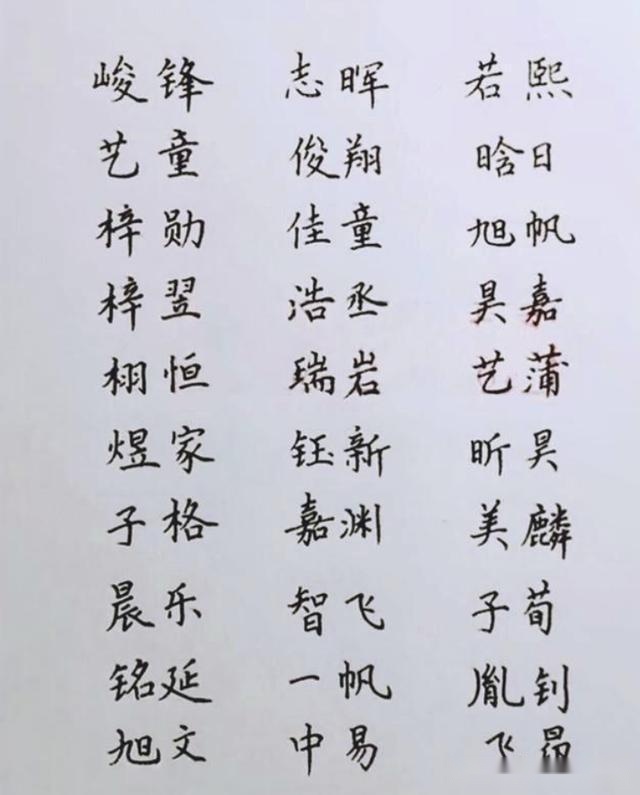 峻锋 志晖 若熙
艺童 俊翔 晗日
梓勋 佳童 旭帆
梓翌 浩丞 昊嘉
栩恒 瑞岩 艺蒲
煜家 钰新 昕昊
子格 嘉渊 美麟
晨乐 智飞 子荀
铭延 一帆 胤钊
旭文 中易 飞昂